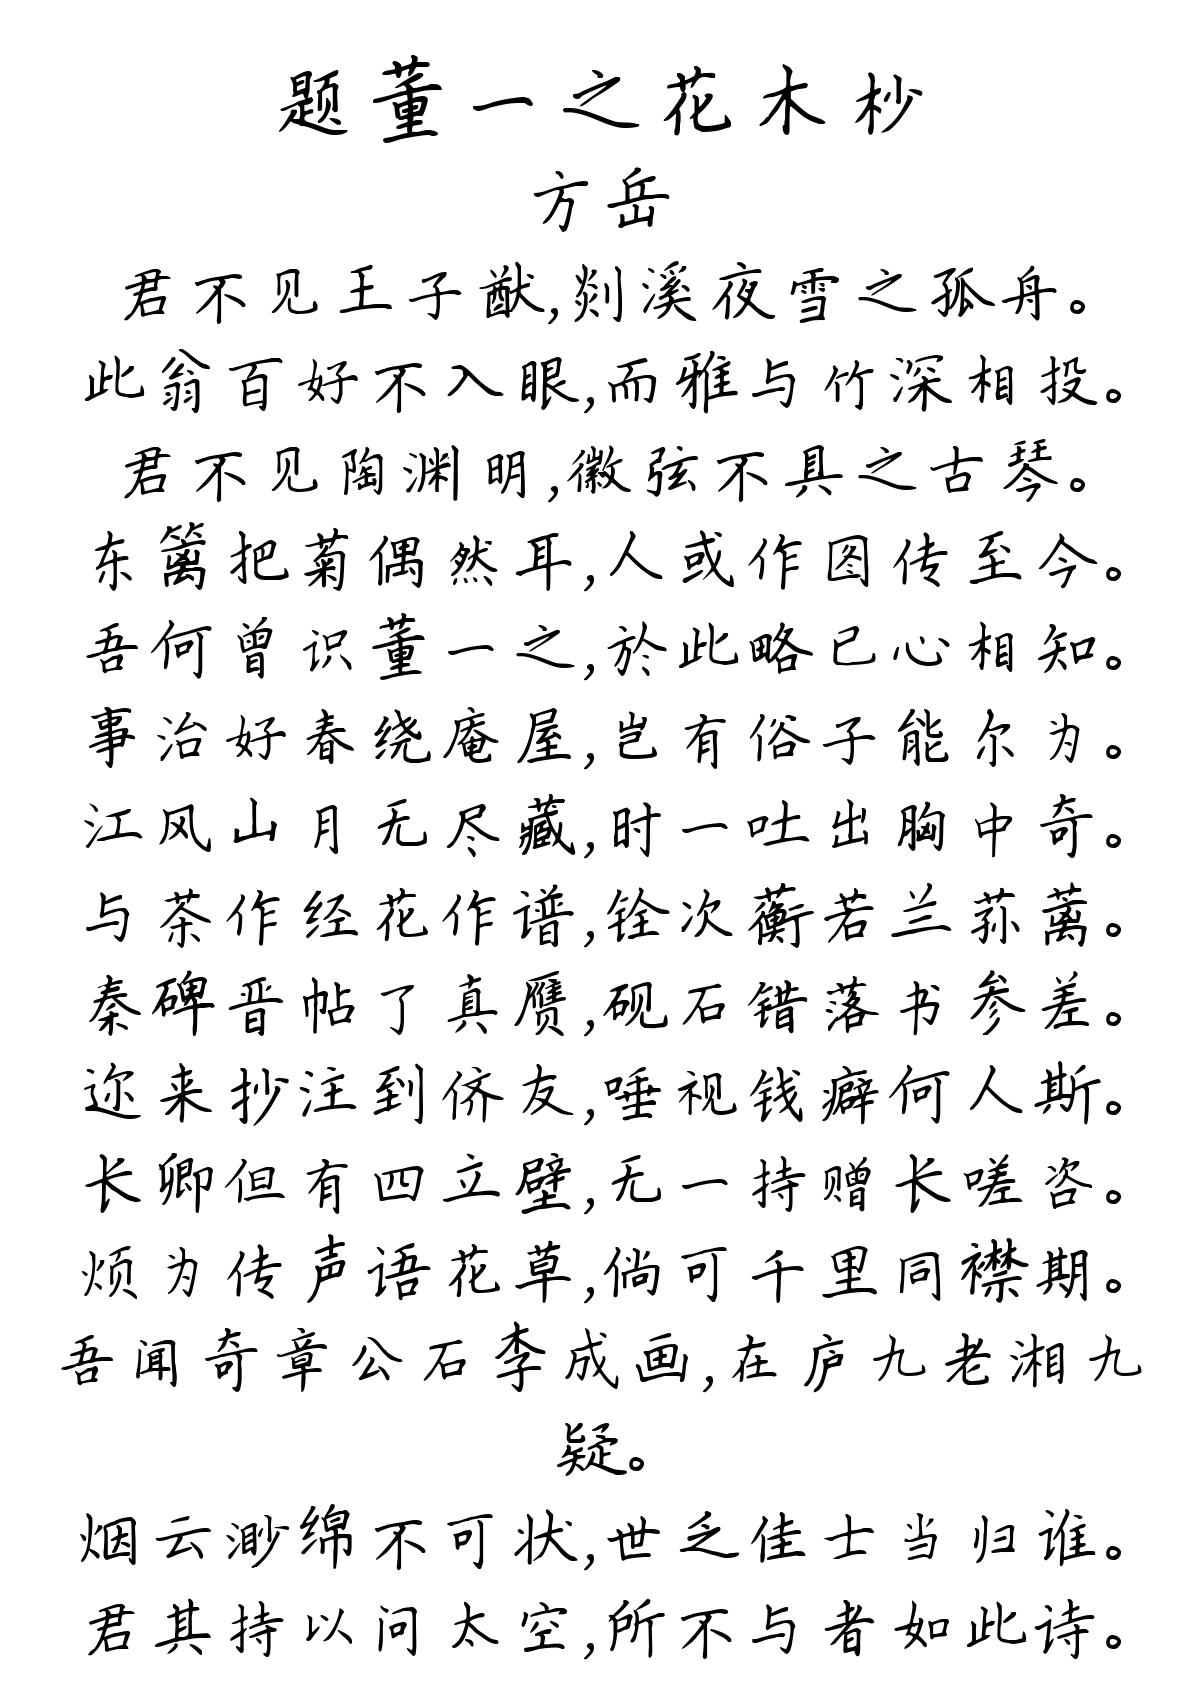 题董一之花木杪
方岳
君不见王子猷,剡溪夜雪之孤舟。
此翁百好不入眼,而雅与竹深相投。
君不见陶渊明,徽弦不具之古琴。
东篱把菊偶然耳,人或作图传至今。
吾何曾识董一之,於此略已心相知。
事治好春绕庵屋,岂有俗子能尔为。
江风山月无尽藏,时一吐出胸中奇。
与茶作经花作谱,铨次蘅若兰荪蓠。
秦碑晋帖了真赝,砚石错落书参差。
迩来抄注到侪友,唾视钱癖何人斯。
长卿但有四立壁,无一持赠长嗟咨。
烦为传声语花草,倘可千里同襟期。
吾闻奇章公石李成画,在庐九老湘九
疑。
烟云渺绵不可状,世乏佳士当归谁。
君其持以问太空,所不与者如此诗。